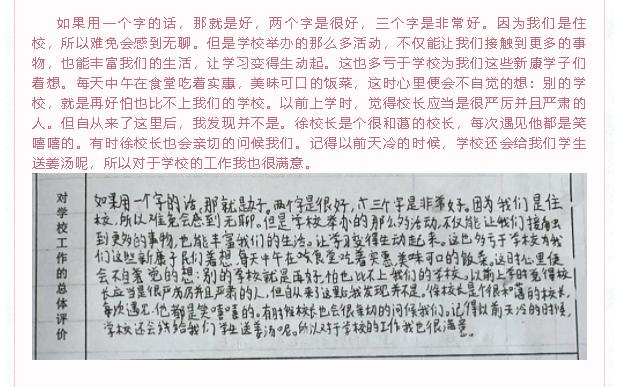 如果用一个字的话，那就是好，两个字是很好，三个字是非常好。因为我们是住
校，所以难免会感到无聊。但是学校举办的那么多活动，不仅能让我们接触到更多的事
物，也能丰富我们的生活，让学习变得生动起。这也多亏于学校为我们这些新康学子们
着想。每天中午在食堂吃着实惠，美味可口的饭菜，这时心里便会不自觉的想：别的学
校，就是再好怕也比不上我们的学校。以前上学时，觉得校长应当是很严厉并且严肃的
人。但自从来了这里后，我发现并不是。徐校长是个很和蔼的校长，每次遇见他都是笑
嘻嘻的。有时徐校长也会亲切的问候我们。记得以前天冷的时候，学校还会给我们学生
送姜汤呢，所以对于学校的工作我也很满意。
对学校工作的总体评价
如果用一个字的话，那就是好。两个字是很好，三个字是非常好。因为我们是住
校，所以难免会感到无聊。但是学校举办的那么多活动，不仅能让我们接触
到更多的事物，也能丰富我们的生活。让学习变得生动起来。这也多亏于学校为我
们这些新康学子们着想，每天中午在食堂吃着实惠，美味可口的饭菜。这时心里便
会不自觉的想：别的学校就是再好，怕也比不上我们的学校。以前上学时觉得校
长应当是很严厉并且严肃的人，但自从来了这里后，我发现并不是。徐校长是个很和蔼的校长，
每次遇见他都是笑嘻嘻的。有时候校长也会很亲切的问候我们。记得以前天冷的时候，
学校还会给我们学生送姜汤呢。所以对于学校的工作我也很满意。